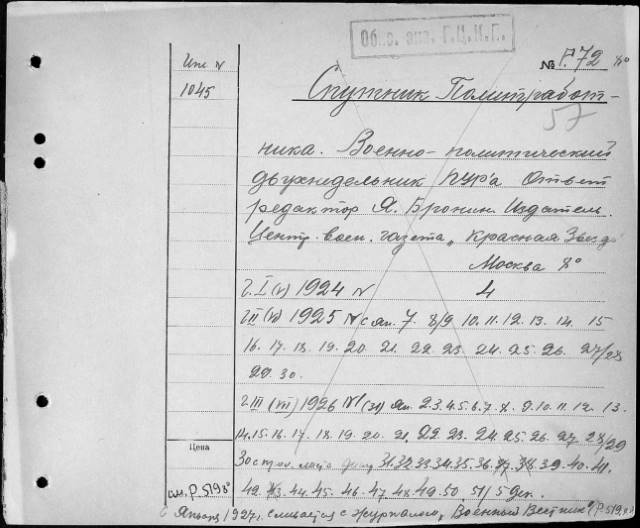 Обно. эпз. Г.Ц.К.Г.
№ Р.72 8°
Инв N
1045
Спутник Политработ-
57
ника. Военно-политический
двухнедельник ПУР'а Ответ
редактор Я. Бронин. Издатель.
Центр. воен. газета „Красная Звезд
Москва 8°
г. I (V) 1924 N 4
г. II (VI) 1925 N с ян. 7. 8/9 10. 11. 12. 13. 14. 15
16. 17. 18. 19. 20. 21. 22. 23. 24. 25. 26. 27/28
29. 30.
г. III (VII) 1926 N 1 (31) Ян. 2.3.4.5.6.7.8.9.10.11.12. 13.
14.15.16.17.18.19.20.21.22.23.24.25.26.27.28/29
30 31.32.33.34.35.36.37.38.39.40.41.
Цена
см. Р.519 8°
42. 43. 44. 45. 46. 47. 48. 49. 50. 51/5 дек.
с Января 1927г. сливается с журналом „Военный Вестник" (Р.519 8°)